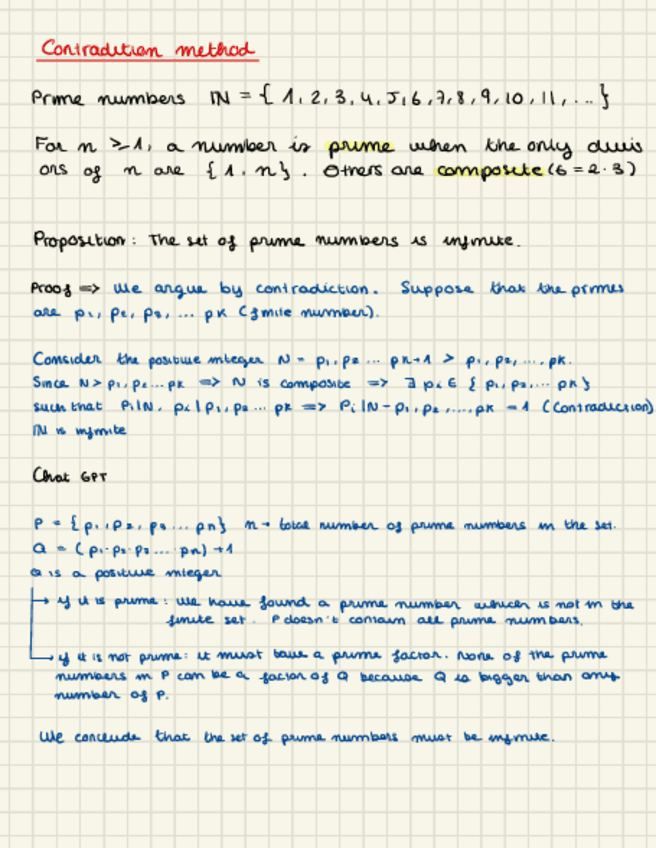 Contradiction method
Prime numbers IN = { 1, 2, 3, 4, 5, 6, 7, 8, 9, 10, 11, ... }
For n ≥ 1, a number is prime when the only divis
ors of n are { 1, n } . Others are composite (6 = 2 · 3)
Proposition : The set of prime numbers is infinite.
Proof => We argue by contradiction. Suppose that the primes
are p1, p2, p3, ... pk (finite number).
Consider the positive integer N = p1, p2 ... pk+1 > p1, p2, ..., pk.
Since N > p1, p2 ... pk => N is composite => ∃ pi ∈ { p1, p2, ... pk }
such that Pi|N, pi | p1, p2 ... pk => Pi |N - p1, p2, ..., pk = 1 (Contradiction)
IN is infinite
Chat GPT
P = { p1, p2, p3 ... pn } n → total number of prime numbers in the set.
Q = (p1 · p2 · p3 ... pn) + 1
Q is a positive integer
→ if it is prime : we have found a prime number which is not in the
finite set . P doesn't contain all prime numbers.
→ if it is not prime : it must have a prime factor. None of the prime
numbers in P can be a factor of Q because Q is bigger than any
number of P.
We conclude that the set of prime numbers must be infinite.